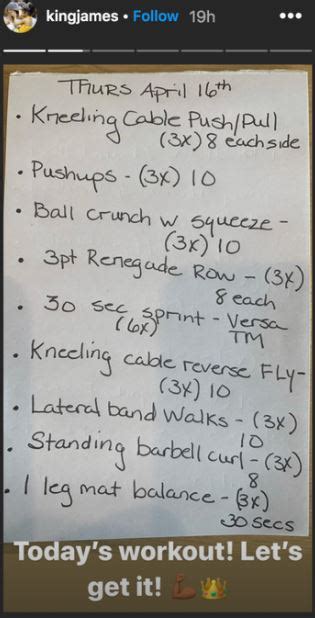 kingjames • Follow 19h •••
THURS April 16th
• Kneeling Cable Push/Pull
(3x) 8 each side
• Pushups - (3x) 10
• Ball crunch w squeeze -
(3x) 10
• 3pt Renegade Row - (3x)
8 each
• 30 sec sprint - Versa
(6x) TM
• Kneeling cable reverse FLy-
(3x) 10
• Lateral band Walks - (3x)
10
• Standing barbell curl - (3x)
8
• 1 leg mat balance - (3x)
30 secs
Today's workout! Let's
get it! 💪🏾👑